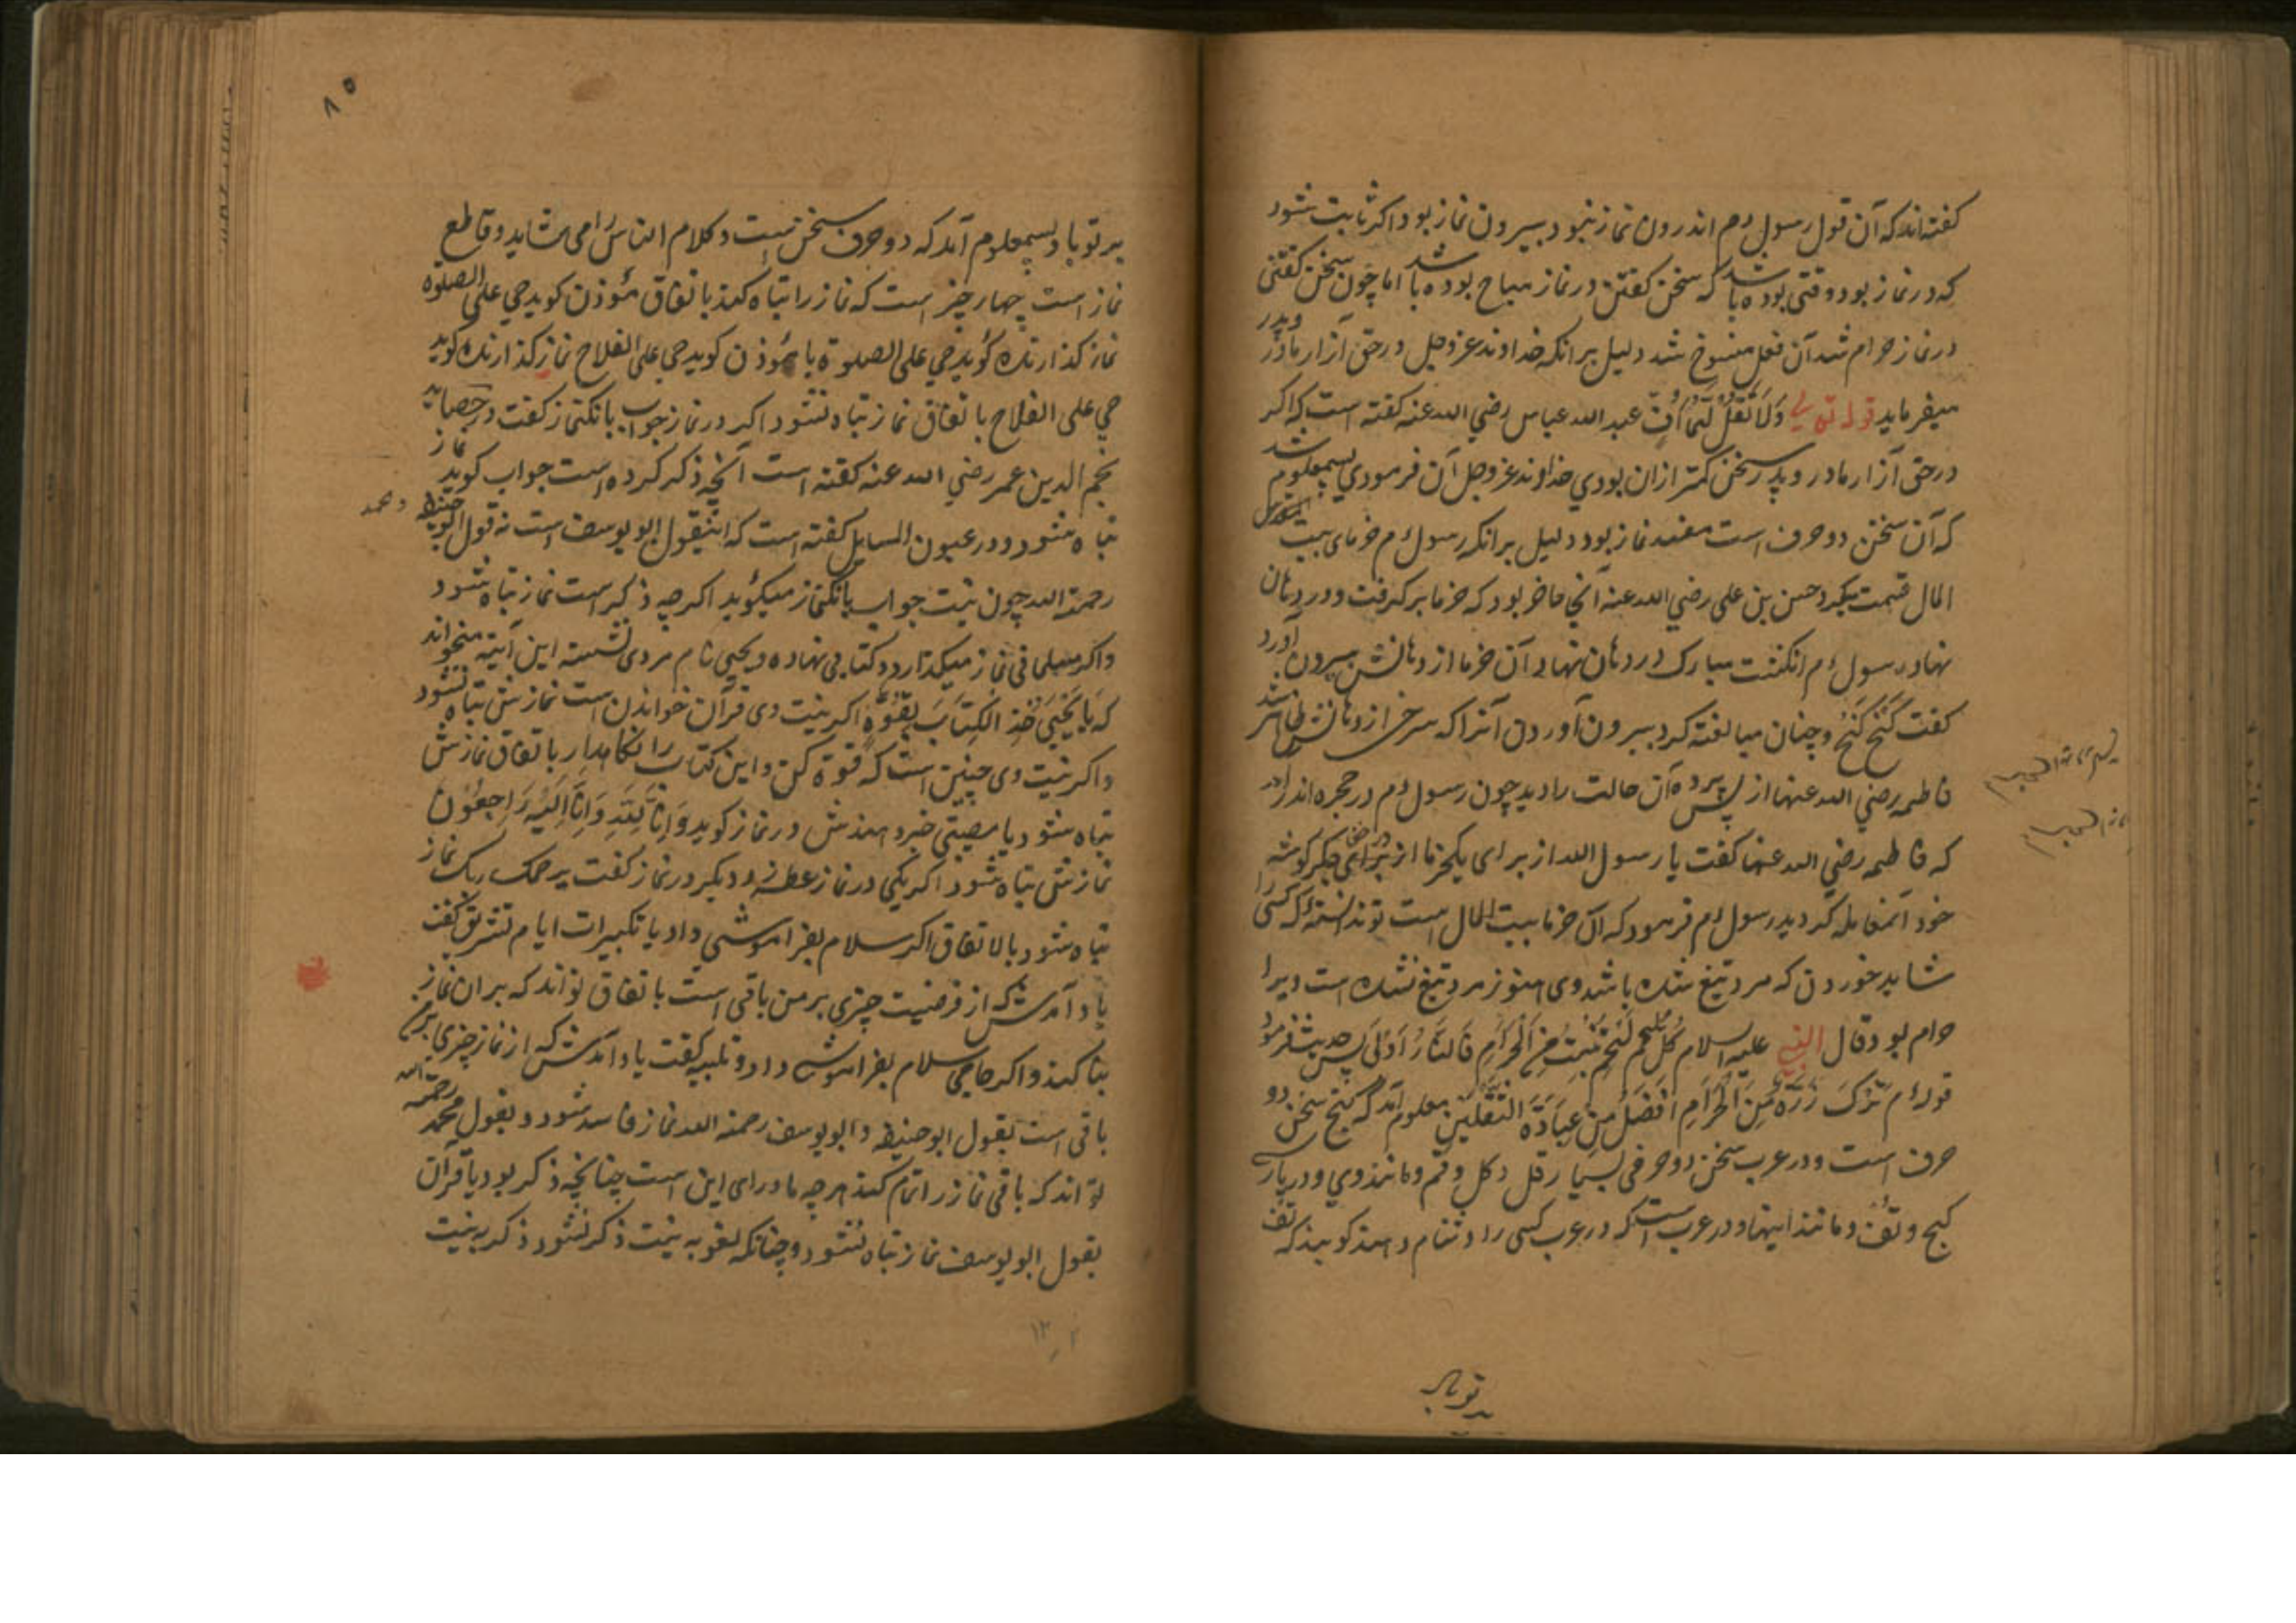 کفته‌اند که آن قول رسول م اندرون نماز نبود بیرون نماز بود اکر ثابت شود
که در نماز بود وقتی بوده باشد که سخن کفتن در نماز مباح بوده باشد اما چون سخن کفتنی
در نماز حرام شد آن فعل منسوخ شد دلیل برانکه خداوند عز وجل در حق آزار مادر وپدر
میفرماید قوله تعالی وَلَا تَقُلْ لَهُمَا اُفٍّ عبد الله عباس رضي الله عنه کفته است که اکر
در حق آزار مادر و پدر سخن کمتر ازان بودي خداوند عز وجل آن فرمودي پس معلوم شد
که آن سخن دو حرف است مفسد نماز بود دلیل برانکه رسول م خرمای بیت
المال قسمت میکرد حسن بن علی رضي الله عنه آنجا حاضر بود که خرما برکرفت و در دهان
نهاد رسول م انکشت مبارک در دهان نهاد آن خرما از دهانش بیرون آورد
کفت کَخْ کَخْ وچنان مبالغه کرد بیرون آوردن آنرا که سرخی از دهانش ظاهر شد
فاطمه رضي الله عنها از پس پرده آن حالت را دید چون رسول م در حجره اندر آمد
که فاطمه رضي الله عنها کفت یا رسول الله از برای یکخرما از برای جکرکوشه
خود این معامله کردید رسول م فرمود که آن خرما بیت المال است تو ندانسته که کسی را
شاید خوردن که مرد تیغ شده باشد وی هنوز مرد تیغ نشده است ویرا
حرام بود قال النبي علیه السلام کُلُّ لَحْمٍ نَبَتَ مِنَ الْحَرَامِ فَالنَّارُ اَوْلَی پس حدیث فرمود
قوله م تَرْکُ ذَرَّةٍ مِنَ الْحَرَامِ اَفْضَلُ مِنْ عِبَادَةِ الثَّقَلَیْنِ معلوم آمد که کخ سخن دو
حرف است ودر عرب سخن دو حرفی بسیار قل وکل وقم ومانند وي ودر پارسی
کخ وتف ومانند اینها ودر عرب است که در عرب کسی را دشنام دهند کویند که تف
بر تو باد
بر تو باد پس معلوم آمد که دو حرف سخن است وکلام الناس را می شاید وقاطع
نماز است چهار چیز است که نماز را تباه کند باتفاق مؤذن کوید حي علی الصلوة
نماز کذارنده کوید حي علی الصلوة یا مؤذن کوید حي علی الفلاح نماز کذارنده کوید
حي علی الفلاح باتفاق نماز تباه نشود اکر در نماز جواب بانکنماز کفت در
نجم الدین عمر رضي الله عنه کفته است آنچه ذکر کرده است جواب کوید نماز
تباه شود ودر عیون المسایل کفته است که اینقول ابو یوسف است نه قول ابو حنیفه ومحمد
رحمة الله چون نیت جواب بانکنماز میکوید اکرچه ذکر است نماز تباه شود
واکر مسلمانی نماز میکذارد وکتابی نهاده ویحیی نام مردی نشسته این آیة میخواند
که یَا یَحْیَی خُذِ الْکِتَابَ بِقُوَّةٍ اکر نیت وی قرآن خواندن است نمازش تباه نشود
واکر نیت وی چنین است که قوة کن واین کتاب را نکاهدار باتفاق نمازش
تباه شود یا مصیبتی خبر دهندش در نماز کوید وَاِنَّا لِلَّهِ وَاِنَّا اِلَیْهِ رَاجِعُوْنَ
نمازش تباه شود اکر یکی در نماز عطسه زد دیکر در نماز کفت یرحمک ربک نماز
تباه شود بالاتفاق اکر سلام بفراموشی داد یا تکبیرات ایام تشریق کفت
یاد آمدش که از فرضیت چیزی بر من باقی است باتفاق تواند که بران نماز
بنا کند واکر حاجی سلام بفراموشی داد وتلبیه کفت یاد آمدش که از نماز چیزی بر من
باقی است بقول ابو حنیفه وابو یوسف رحمة الله نماز فاسد شود وبقول محمد رحمة الله
تواند که باقی نماز را تمام کند هرچه ماورای این است چنانچه ذکر بود یا قرآن
بقول ابو یوسف نماز تباه نشود وچنانکه لغو به نیت ذکر نشود ذکر به نیت